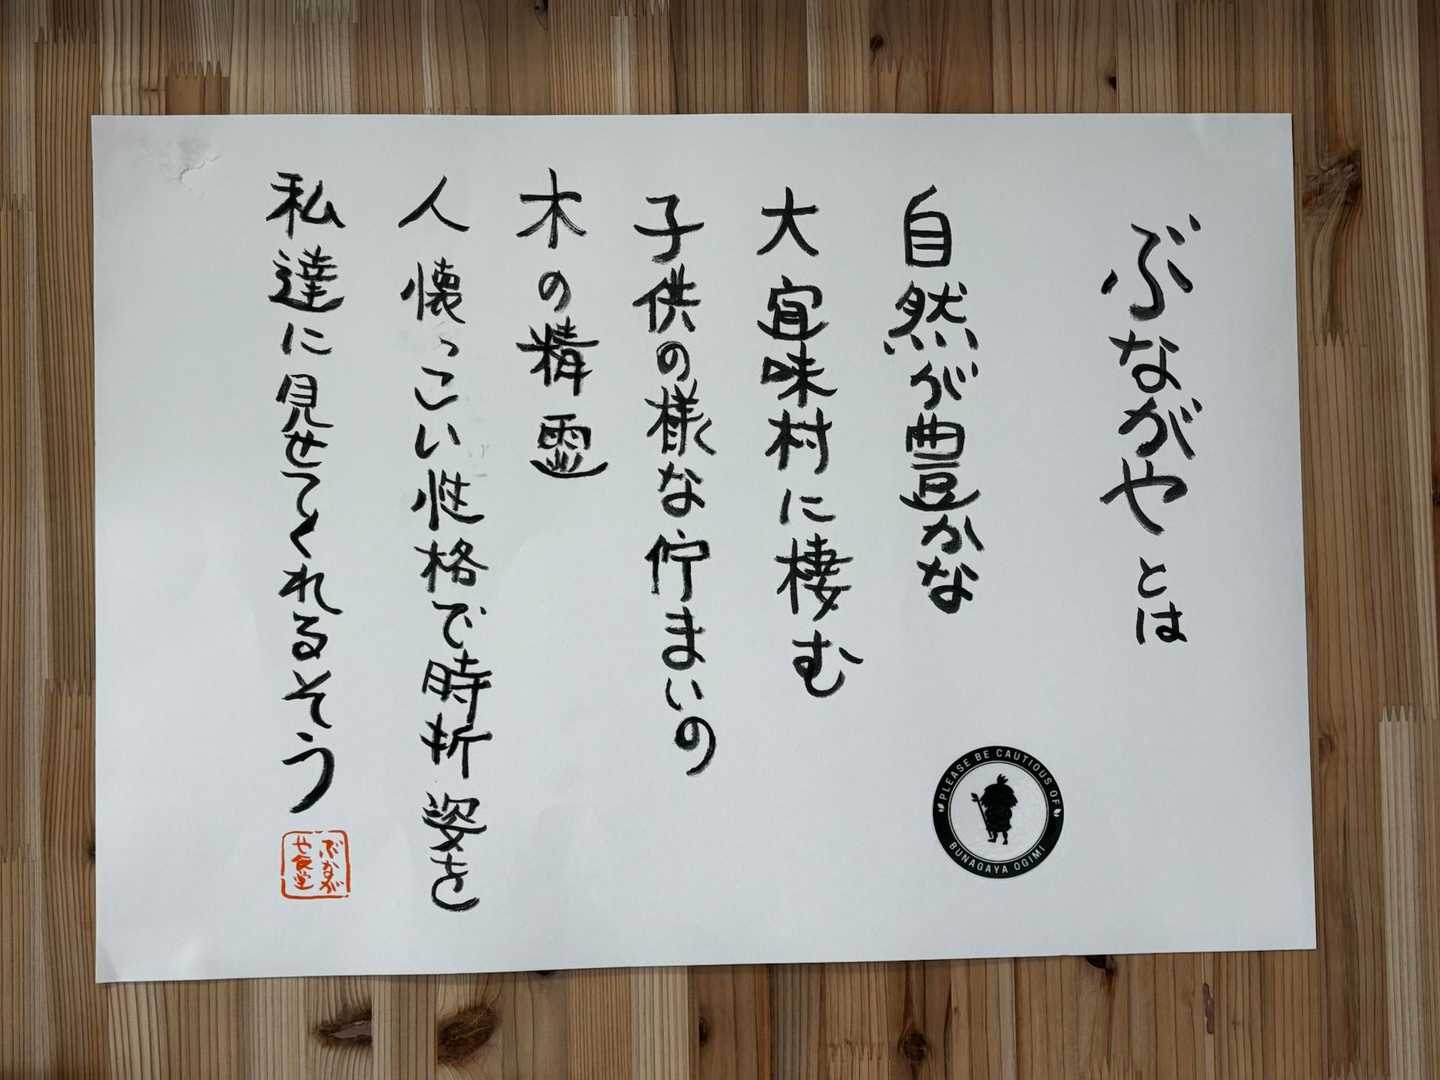 ぶながやとは
自然が豊かな
大宜味村に棲む
子供の様な佇まいの
木の精霊
人懐っこい性格で時折姿を
私達に見せてくれるそう
PLEASE BE CAUTIOUS OF
BUNAGAYA OGIMI
ぶなが
や食堂